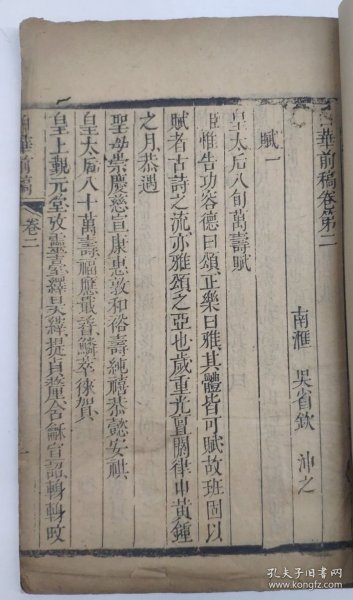 白華前稿卷第二
南滙 吳省欽 沖之
賦一
皇太后八旬萬壽賦
臣惟告功容德曰頌正樂曰雅其體皆可賦故班固以
賦者古詩之流亦雅頌之亞也歲重光亶閼律中黃鍾
之月恭遇
聖母崇慶慈宣康惠敦和裕壽純禧恭懿安祺
皇太后八十萬壽福應最普鱗萃徠賀
皇上觀元堂攷靈臺繹昊緯提貞
白華前稿
卷二
孔夫子旧书网
kongfz.com